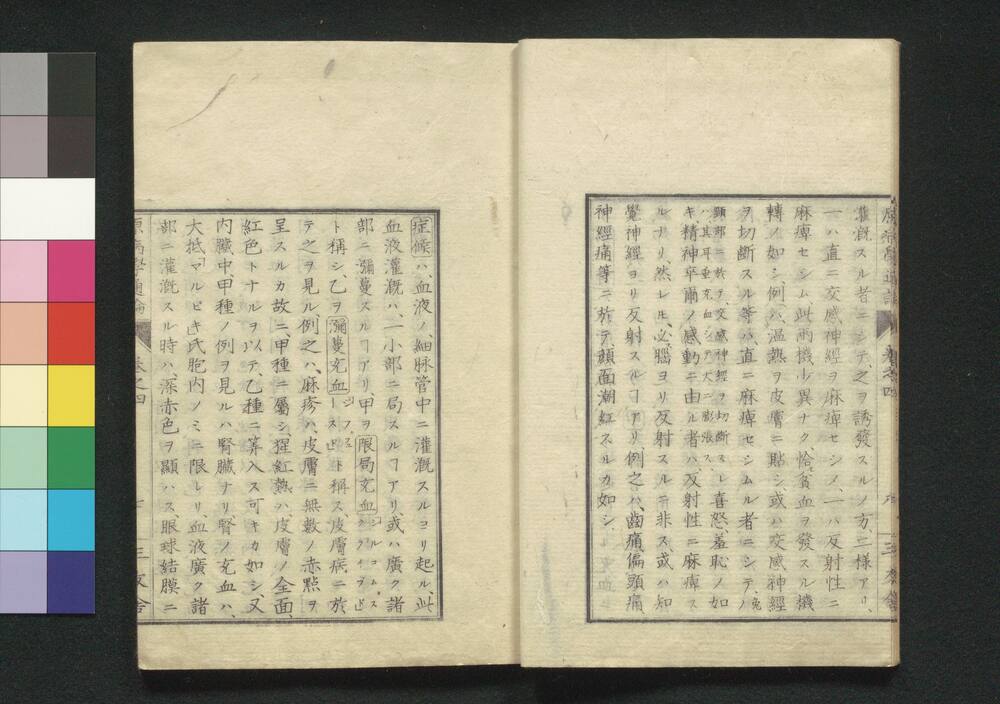 灌漑スル者ニシテ、之ヲ誘發スルノ方、二樣アリ、
一ハ直ニ交感神經ヲ麻痺セシメ、一ハ反射性ニ
麻痺セシム、此兩機少異ナク恰モ貧血ヲ發スル機
轉ノ如シ、例ハ、温熱ヲ皮膚ニ貼シ、或ハ交感神經
ヲ切斷スル等ハ、直ニ麻痺セシムル者ニシテ、兔ノ
頸部ニ於テ交感神經ヲ切斷スレ
ハ、其耳垂充血シテ大ニ膨張ス、喜怒、羞恥ノ如
キ、精神卒爾ノ感動ニ由ル者ハ、反射性ニ麻痺ス
ルナリ、然レ𪜈、必腦ヨリ反射スルニ非ス、或ハ知
覺神經ヨリ反射スルヿアリ、例之ハ、齒痛、偏頭痛
神經痛等ニ於テ、顔面潮紅スルカ如シ、
症候ハ、血液ノ細脉管中ニ灌漑スルヨリ起ル、此
血液灌漑ハ、一小部ニ局スルヿアリ、或ハ廣ク諸
部ニ彌蔓スルヿアリ、甲ヲ限局充血
ト稱シ、乙ヲ彌蔓充血ト稱ス、皮膚病ニ於
テ之ヲ見ル、例之ハ、麻疹ハ、皮膚ニ無數ノ赤點ヲ
呈スルカ故ニ、甲種ニ屬シ、猩紅熱ハ、皮膚ノ全面、
紅色トナルヲ以テ、乙種ニ算入ス可キカ如シ、又
内臟中甲種ノ例ヲ見ルハ腎臟ナリ、腎ノ充血ハ、
大抵「マルピギ」氏胞内ノミニ限レリ、血液廣ク諸
部ニ灌漑スル時ハ、深赤色ヲ顯ハス、眼球結膜ニ
原病學通論 卷之四 三友舍